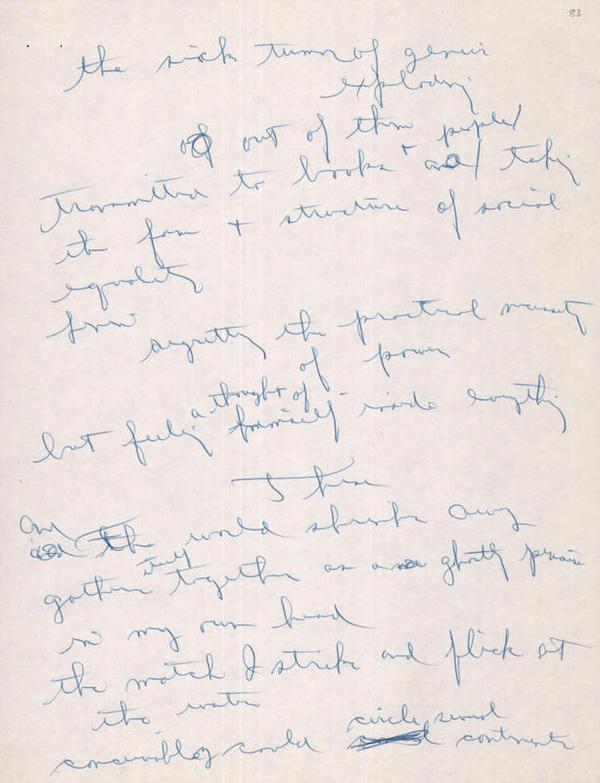 83
the sick tumor of genius
exploding
out of them people
transmitted to books + taking
the form + structure of social
equality
from
regretting the practical necessity
of power
a thought of
but feeling himself inside everything
And the world shrinks away
itself
gathers together as a ghostly promise
in my own head
the match I strike and flick at
the water
circle several
conceivably could continents